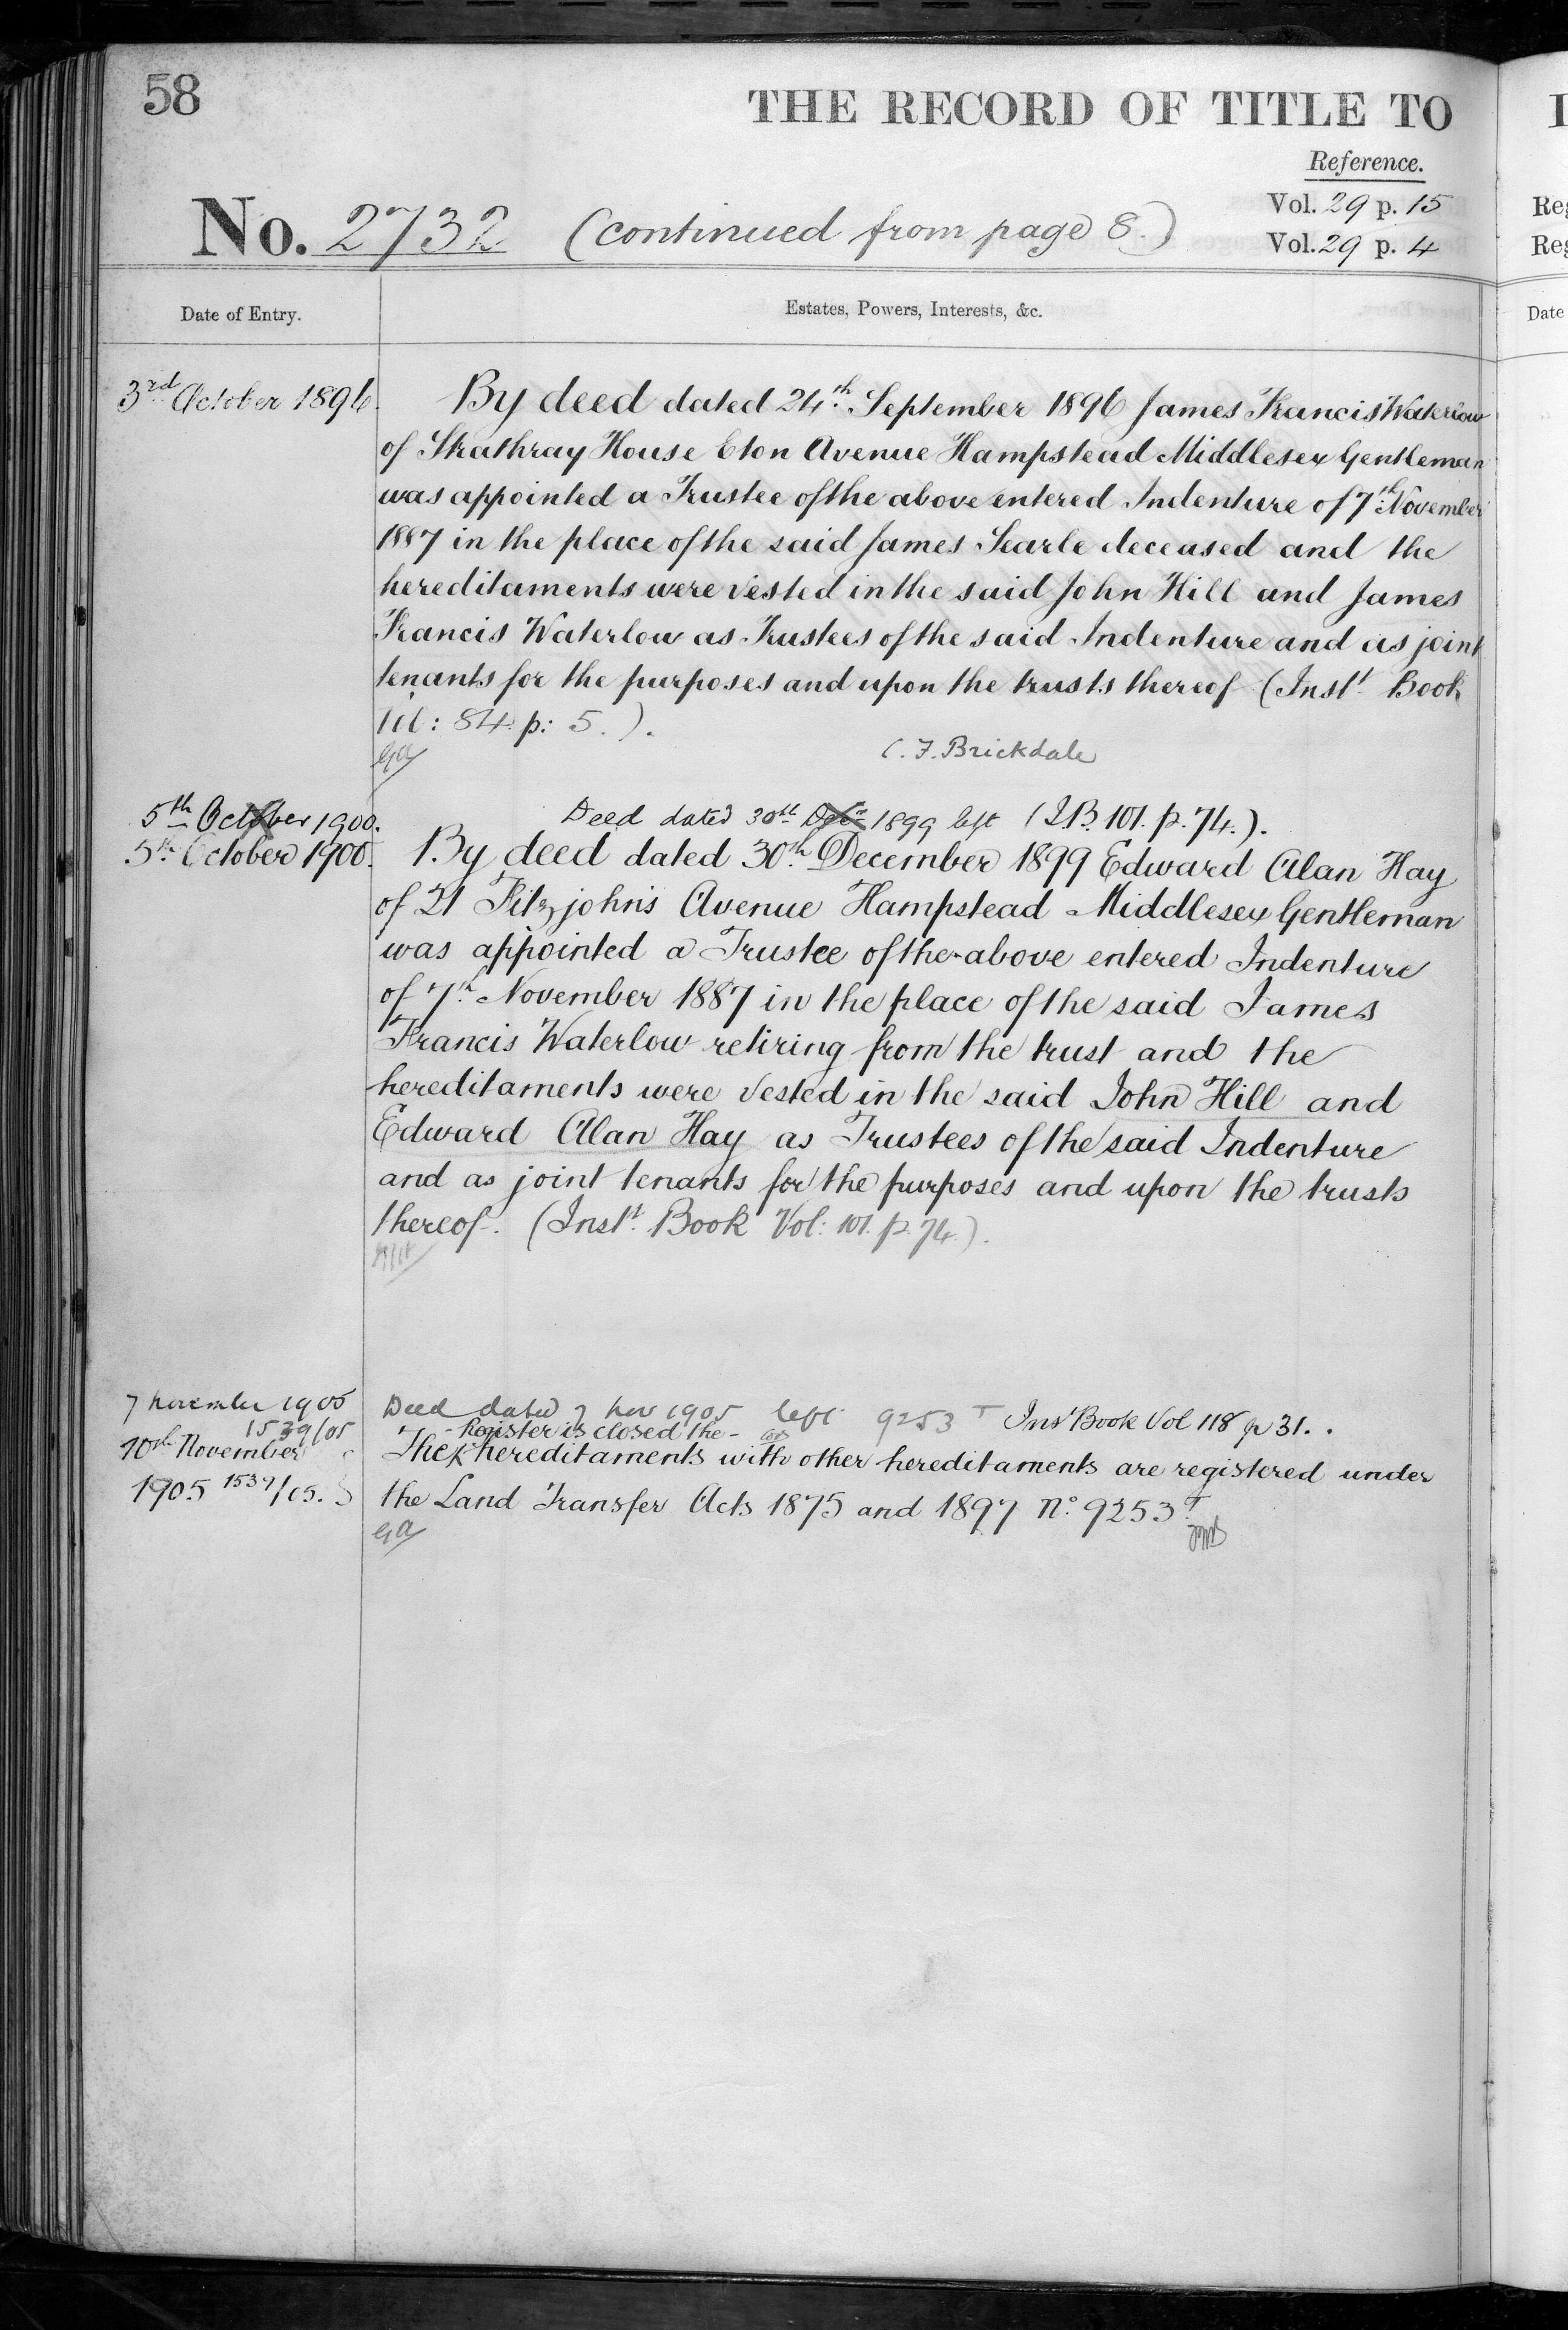 58
THE RECORD OF TITLE TO
Reference.
No. 2732 (continued from page 8.)
Vol. 29 p. 15
Vol. 29 p. 4
Date of Entry.
Estates, Powers, Interests, &c.
3rd October 1896.
By deed dated 24th September 1896 James Francis Waterlow
of Strathray House Eton Avenue Hampstead Middlesex Gentleman
was appointed a Trustee of the above entered Indenture of 7th November
1887 in the place of the said James Searle deceased and the
hereditaments were vested in the said John Hill and James
Francis Waterlow as Trustees of the said Indenture and as joint
tenants for the purposes and upon the trusts thereof (Instt Book
Vol: 84. p: 5.).
C. F. Brickdale
5th October 1900.
Deed dated 30th Decr 1899 left (I.B. 101. p. 74.).
5th October 1900.
By deed dated 30th December 1899 Edward Alan Hay
of 21 Fitzjohn's Avenue Hampstead Middlesex Gentleman
was appointed a Trustee of the above entered Indenture
of 7th November 1887 in the place of the said James
Francis Waterlow retiring from the trust and the
hereditaments were vested in the said John Hill and
Edward Alan Hay as Trustees of the said Indenture
and as joint tenants for the purposes and upon the trusts
thereof. (Instt Book Vol: 101. p. 74.).
7 November 1905
1539/05
Deed dated 7 Nov 1905 left 9253 T Inst Book Vol 118 p 31..
Register is closed the
10th November
1905 1539/05.
The hereditaments with other hereditaments are registered under
the Land Transfer Acts 1875 and 1897 No. 9253 T
I
Reg
Reg
Date